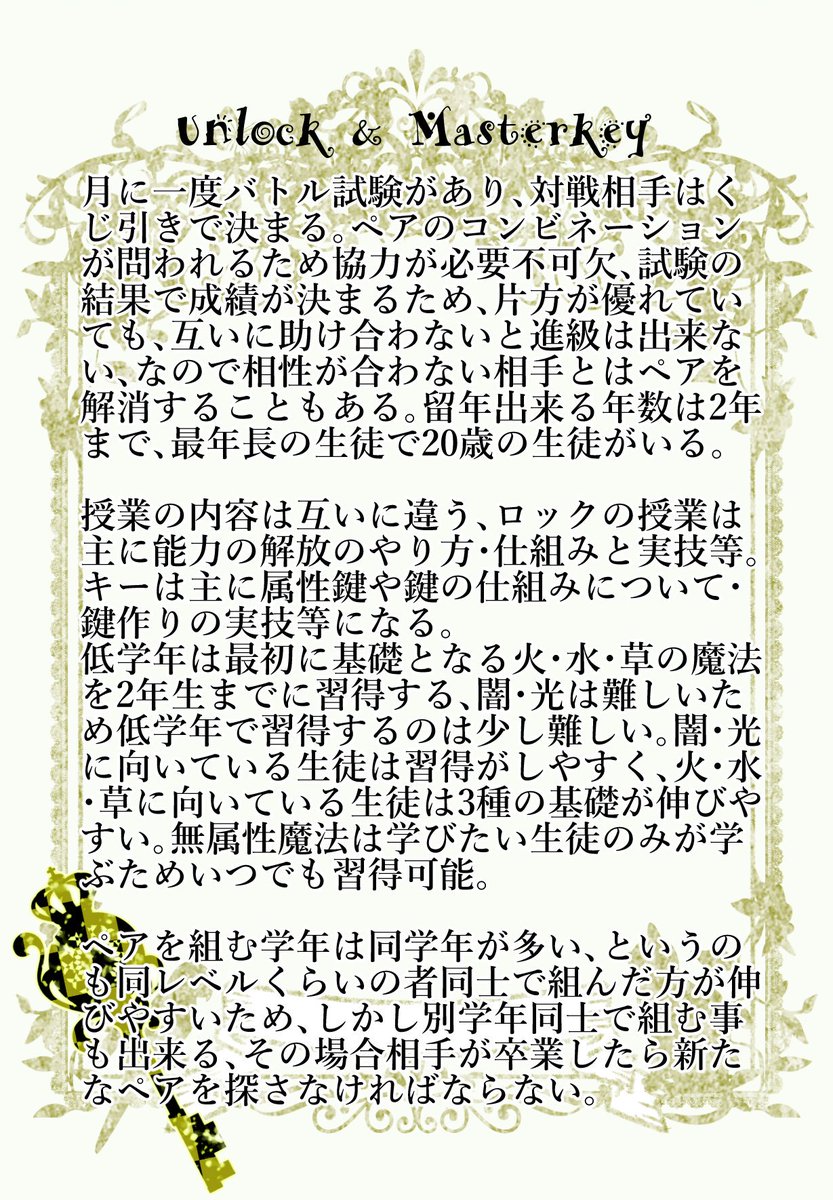 Unlock & Masterkey
月に一度バトル試験があり、対戦相手はく
じ引きで決まる。ペアのコンビネーション
が問われるため協力が必要不可欠、試験の
結果で成績が決まるため、片方が優れてい
ても、互いに助け合わないと進級は出来な
い、なので相性が合わない相手とはペアを
解消することもある。留年出来る年数は2年
まで、最年長の生徒で20歳の生徒がいる。
授業の内容は互いに違う、ロックの授業は
主に能力の解放のやり方・仕組みと実技等。
キーは主に属性鍵や鍵の仕組みについて・
鍵作りの実技等になる。
低学年は最初に基礎となる火・水・草の魔法
を2年生までに習得する、闇・光は難しいた
め低学年で習得するのは少し難しい。闇・光
に向いている生徒は習得がしやすく、火・水
・草に向いている生徒は3種の基礎が伸びや
すい。無属性魔法は学びたい生徒のみが学
ぶためいつでも習得可能。
ペアを組む学年は同学年が多い、というの
も同レベルくらいの者同士で組んだ方が伸
びやすいため、しかし別学年同士で組む事
も出来る、その場合相手が卒業したら新た
なペアを探さなければならない。